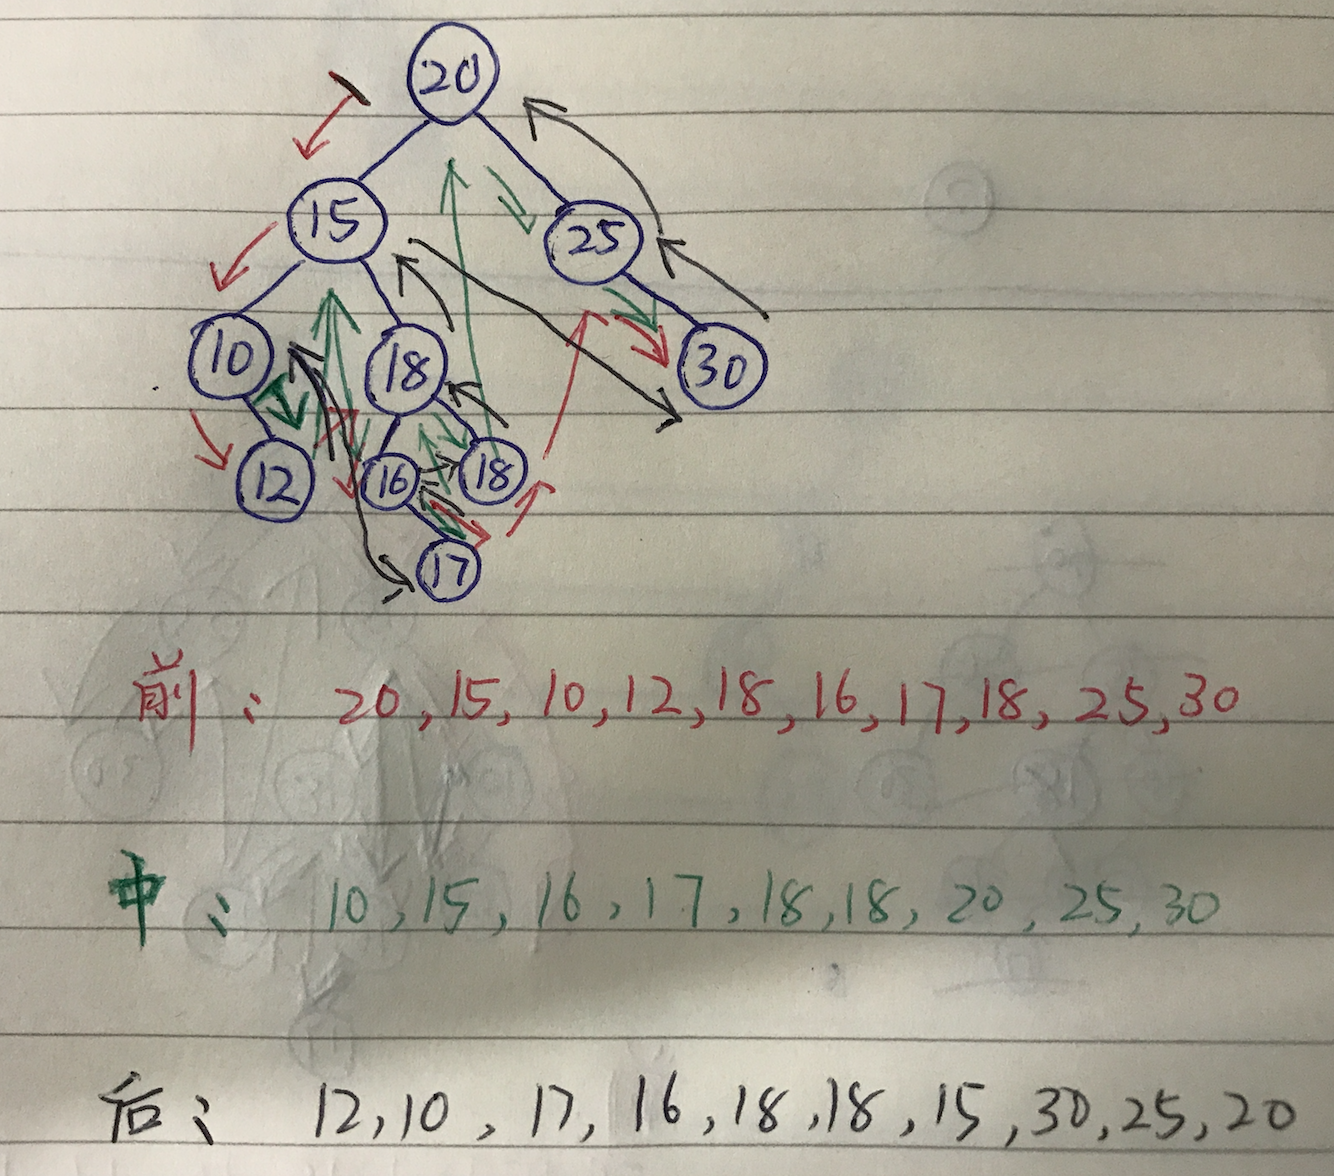 20
15 25
10 18 30
12 16 18
17
前: 20,15,10,12,18,16,17,18,25,30
中: 10,15,16,17,18,18,20,25,30
后: 12,10,17,16,18,18,15,30,25,20